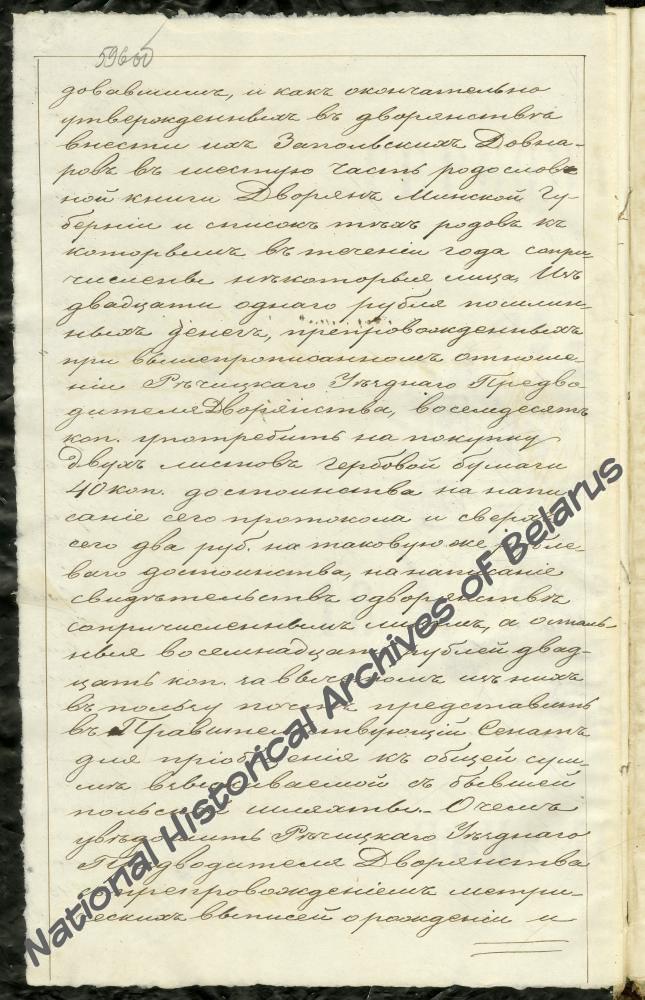 596 об
довавшимъ, и какъ окончательно
утвержденныхъ въ дворянствѣ
внести ихъ Запольскихъ Довна-
ровъ въ шестую часть родослов-
ной книги Дворянъ Минской Гу-
берніи и списокъ тѣхъ родовъ къ
которымъ въ теченіи года сопри-
числены нѣкоторыя лица, Изъ
двадцати однаго рубля пошлин-
ныхъ денегъ, препровожденныхъ
при вышепрописанномъ отноше-
ніи Рѣчицкаго Уѣзднаго Предво-
дителя Дворянства, восемдесятъ
коп. употребить на покупку
двухъ листовъ гербовой бумаги
40 коп. достоинства на напи-
саніе сего протокола и сверхъ
сего два руб. на таковую же рубле-
ваго достоинства, на написаніе
свидѣтельствъ о дворянствѣ
сопричисленнымъ лицамъ, а осталь-
ныя восемнадцать рублей двад-
цать коп. за вычетомъ изъ нихъ
въ пользу почты представить
въ Правительствующій Сенатъ
для пріобщенія къ общей сум-
мѣ взыскиваемой съ бывшей
польской шляхты. О чемъ
увѣдомить Рѣчицкаго Уѣзднаго
Предводителя Дворянства
съ препровожденіемъ метри-
ческихъ выписей о рожденіи и
National Historical Archives of Belarus